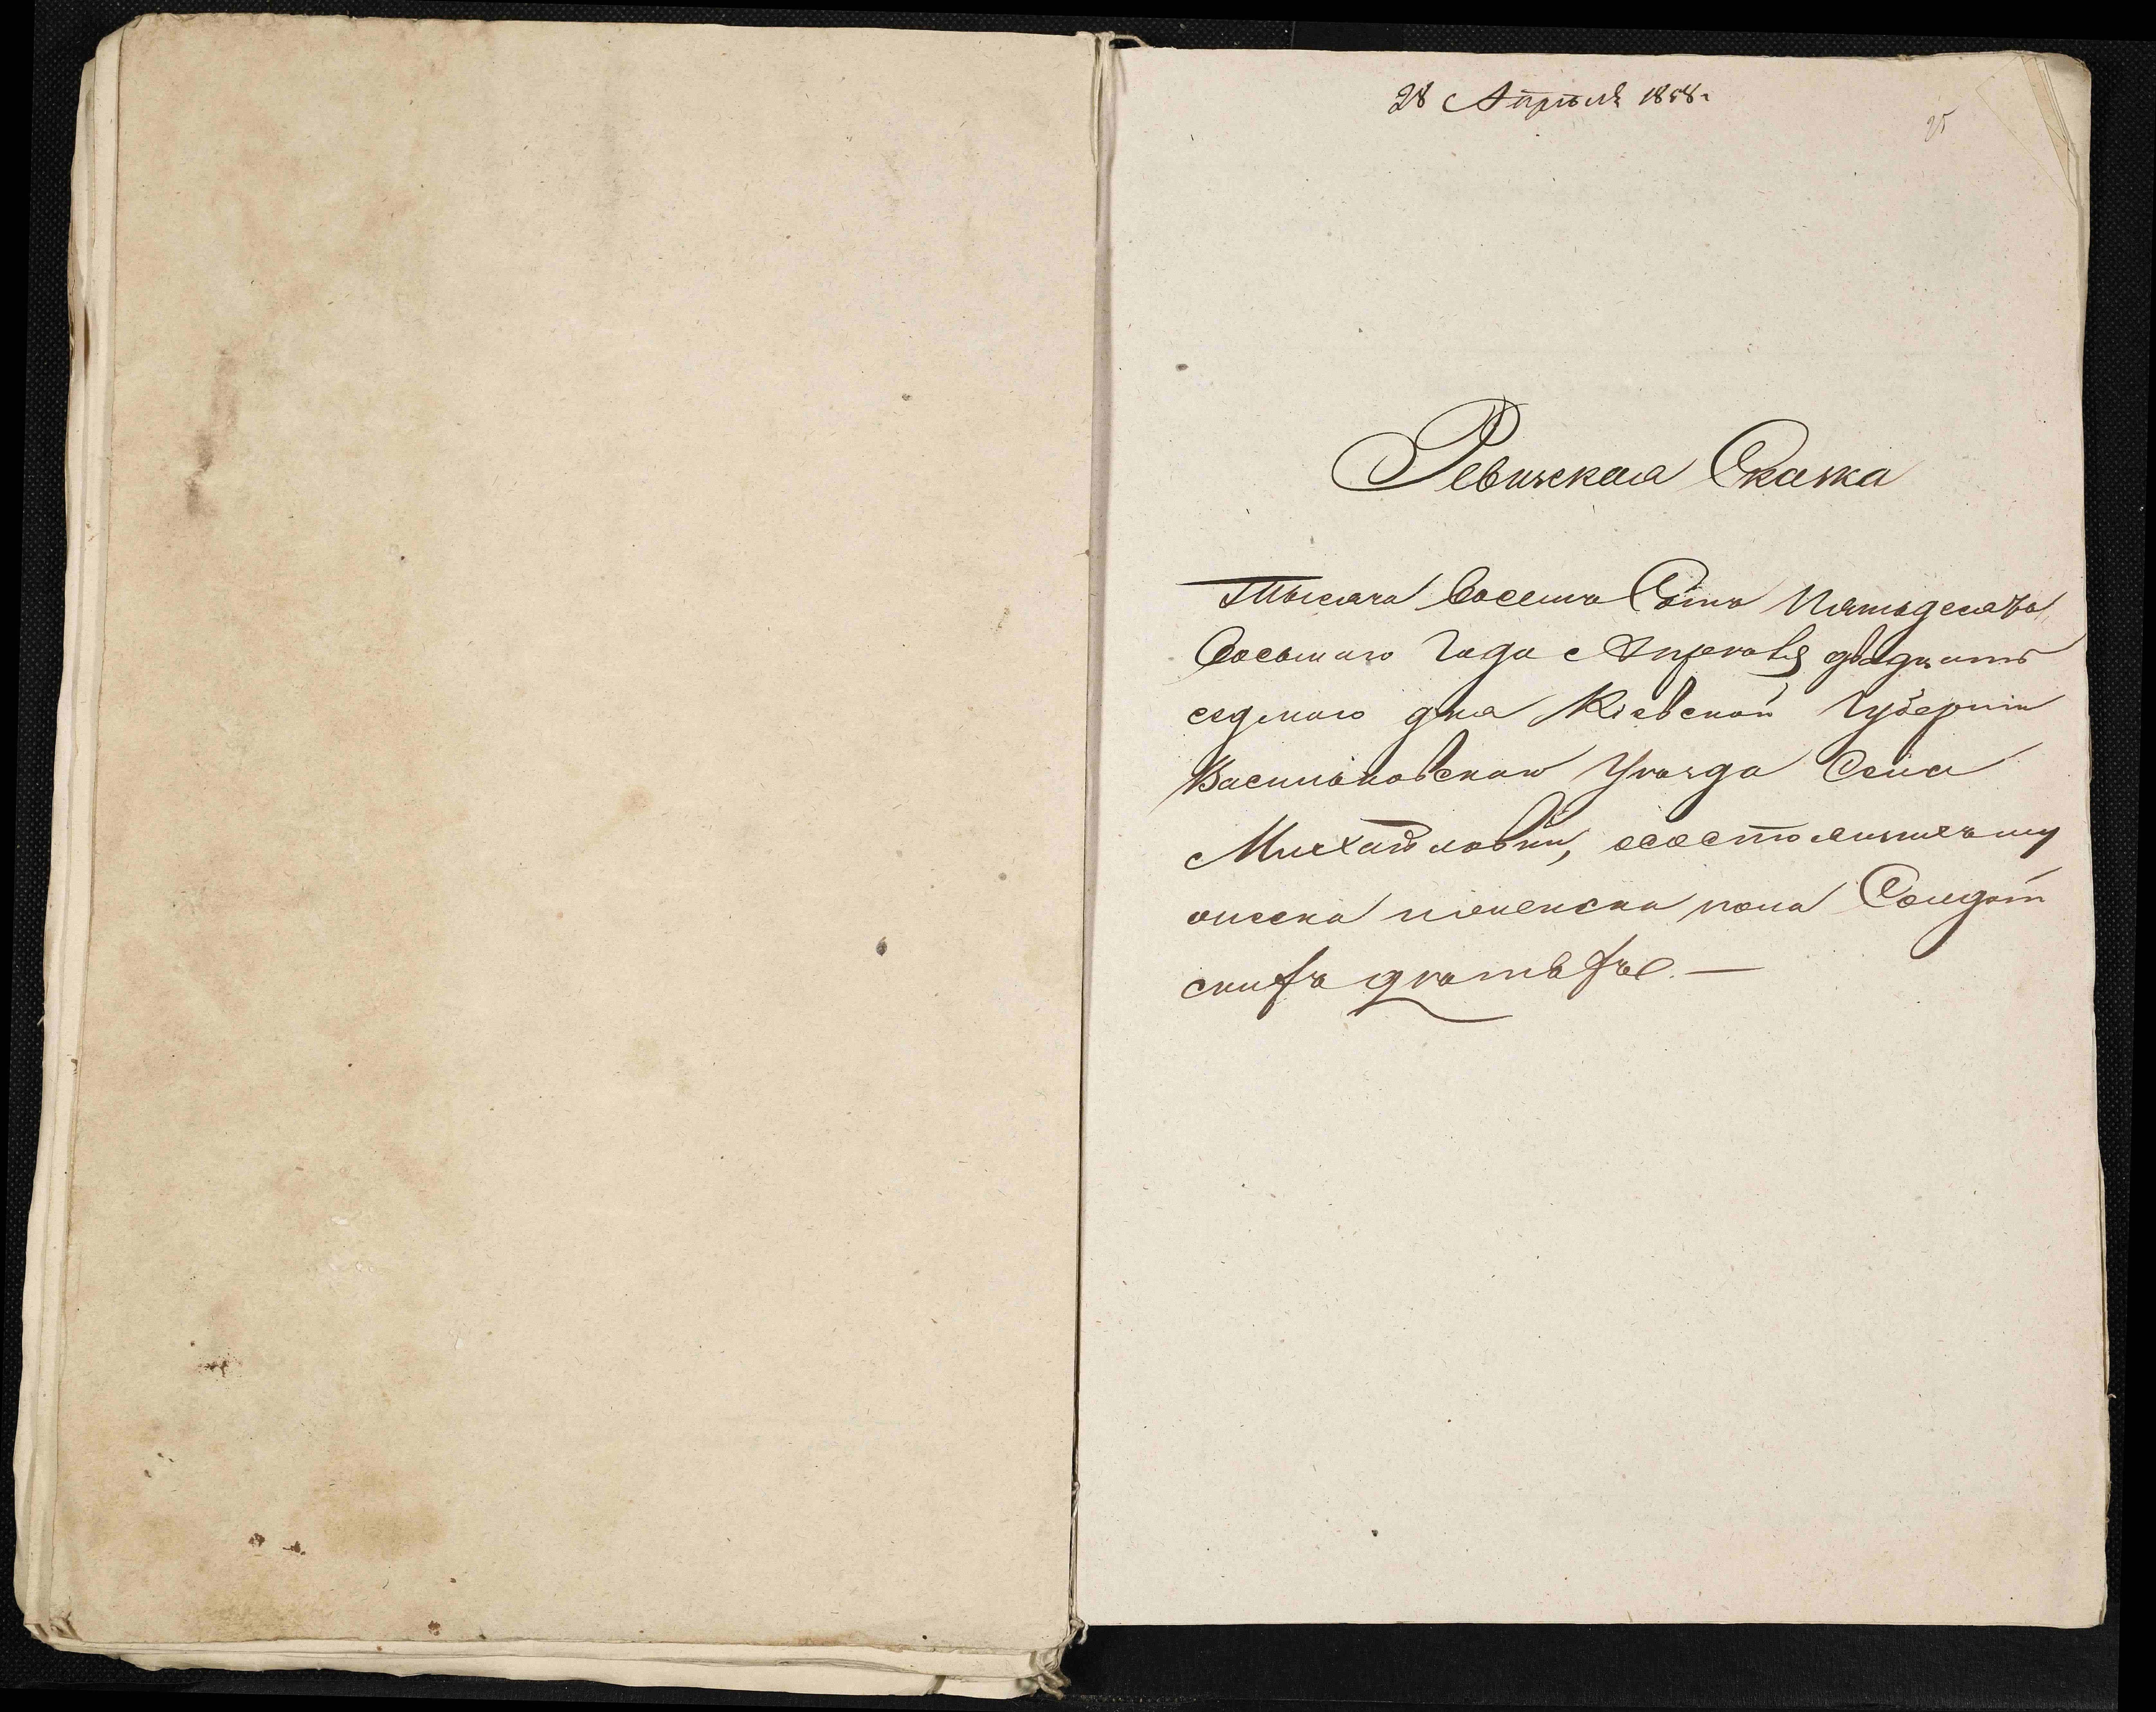 28 Апреля 1858 г
25
Ревизская Сказка
Тысяча Восемь Сотъ Пятьдесятъ
Восьмаго Года Апреля двадцать
седмаго дня Кіевской Губерніи
Васильковскаго Уезда Села
Михайловки, о состоящихъ
женска пола Солдат
скихъ детяхъ. —